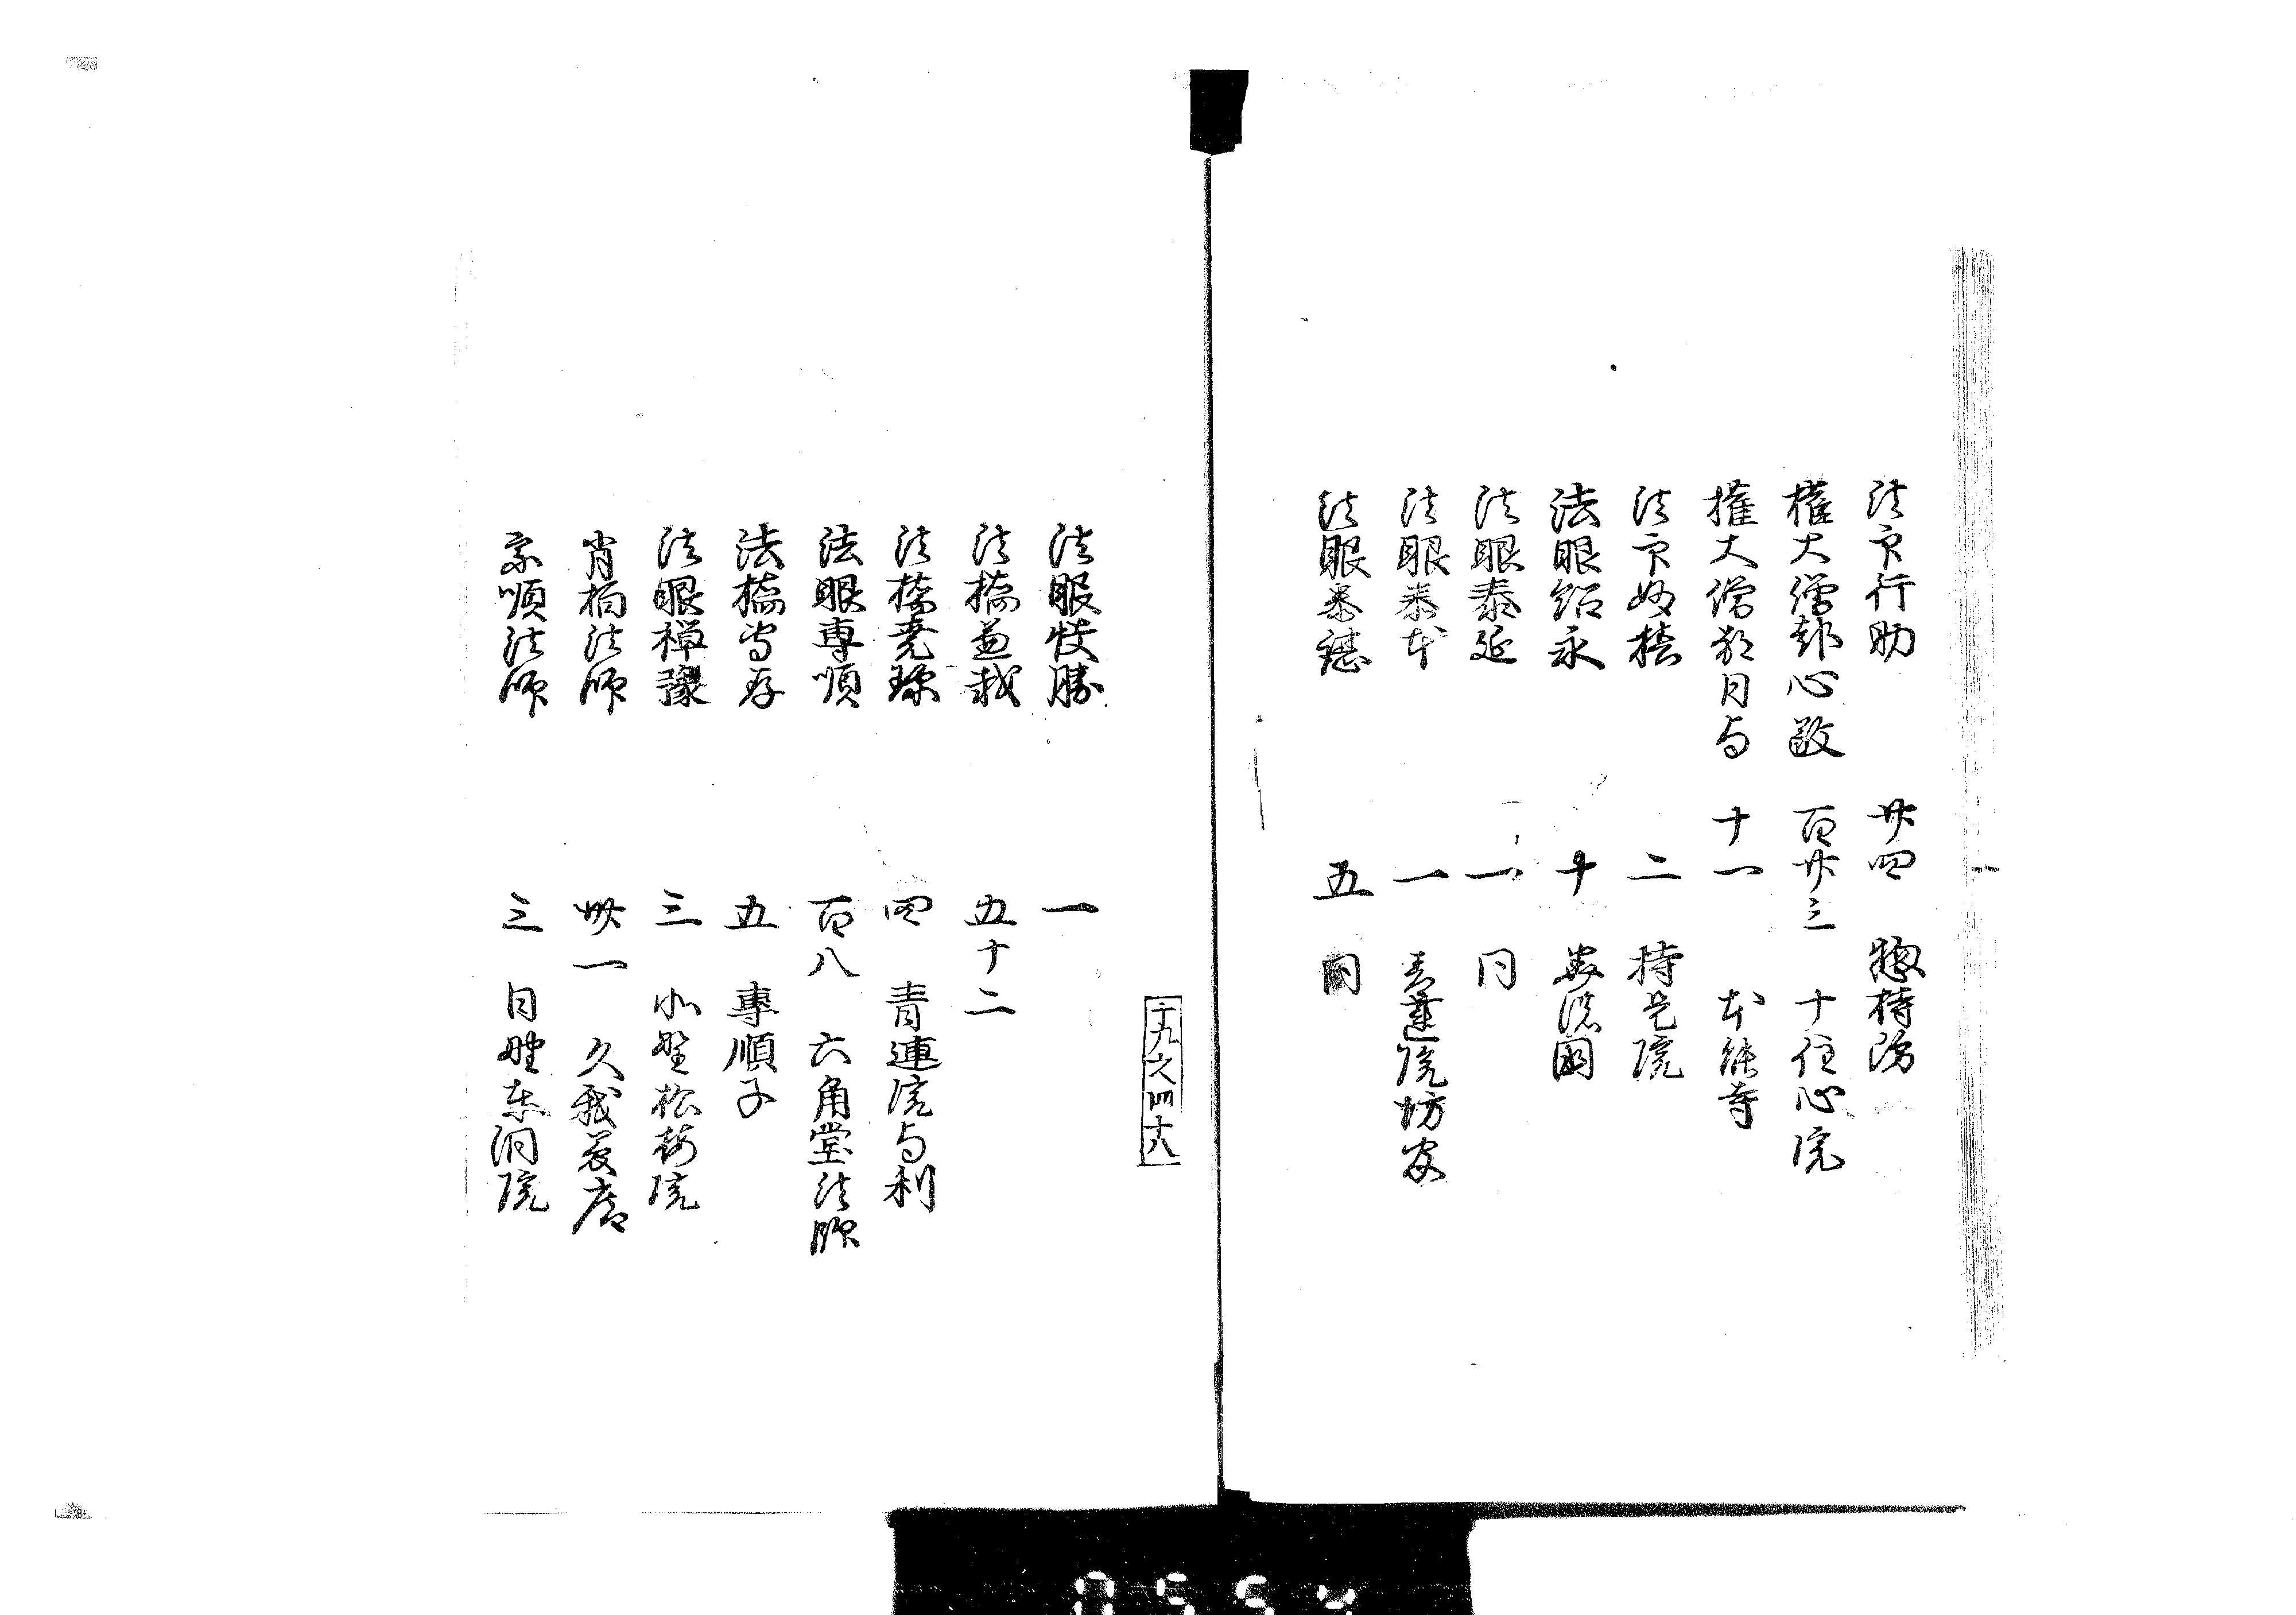 法印行助 廿四 惣持坊
権大僧都心敬 百廿三 十住心院
権大僧都日与 十一 本能寺
法印 二 持是院
法眼紹永 十 美濃国
法眼泰延 一 同
法眼泰本 一 青蓮院坊官
法眼泰諶 五 同
法眼快勝 一
法橋兼載 五十二
法橋尭珎 四 青蓮院与利
法眼専順 百八 六角堂法師
法橋量存 五 専順子
法眼禅豫 三 北野松梅院
肖柏法師 卅一 久我庶
宗順法師 三 日野東洞院
十九之四十八